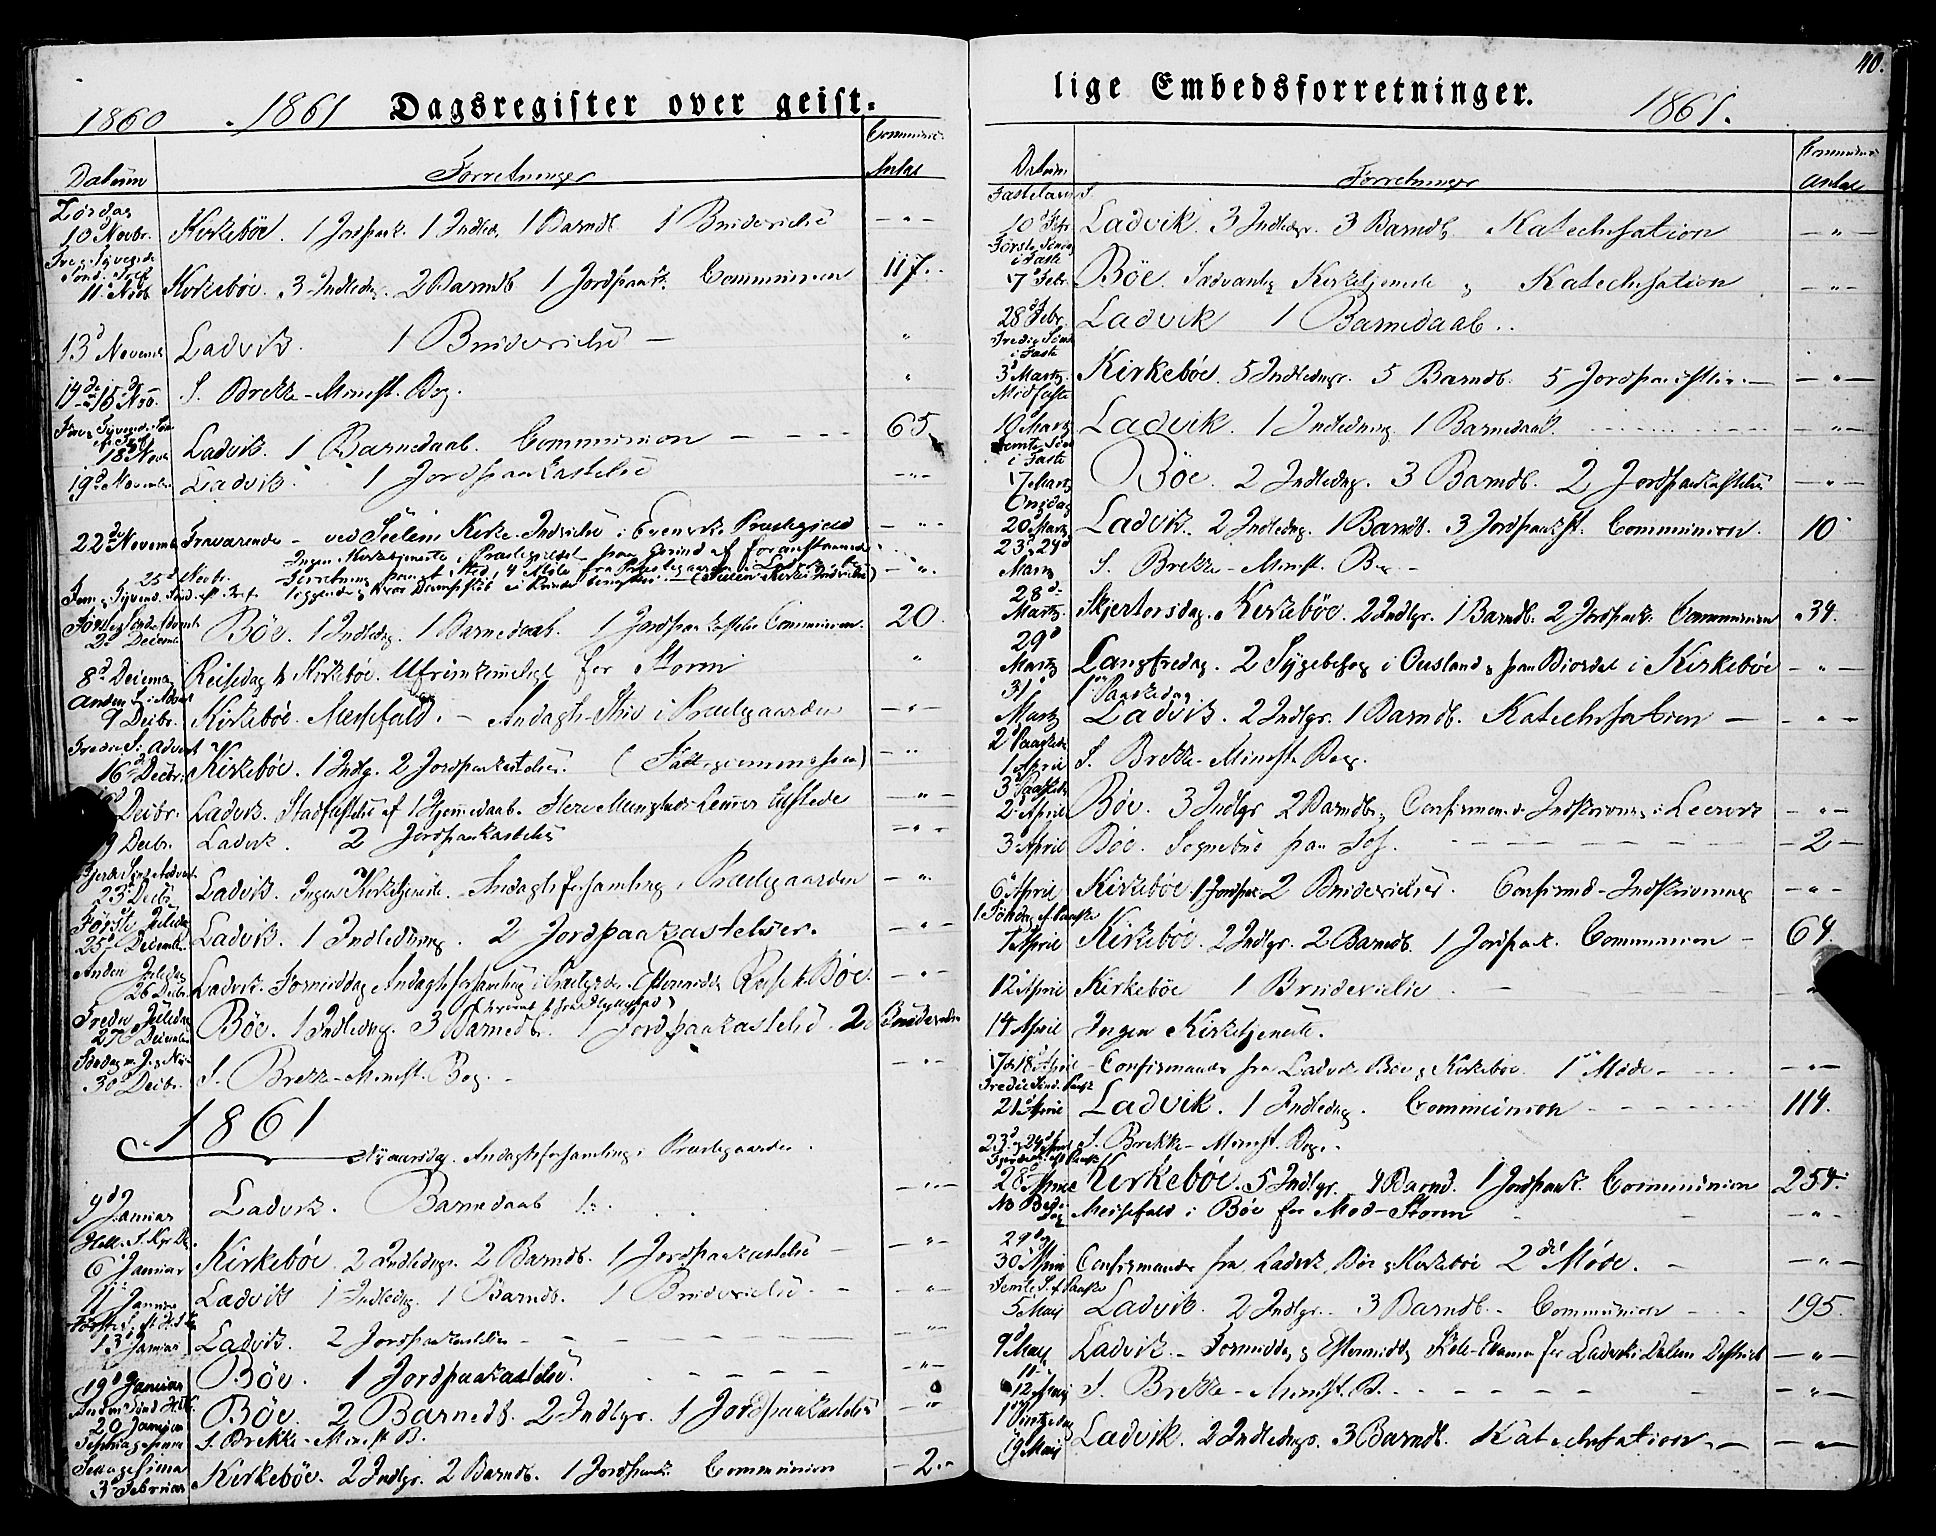 1860 1861 Dagsregister over geist-
Datum Forretninger Antal
Lørdag
10 Novbr. Kirkebøe. 1 Jordpaak. 1 Indled. 1 Barndb. 1 Brudevielse
11 Novb. Kirkebøe. 3 Indledng. 2 Barndb. 1 Jordpaak. Communion 117.
13d Novemb. Ladvik. 1 Brudevielse
S. Brekke - Minist. Bog.
18d Novb. Ladvik. 1 Barnedaab. Communion 65
19d November Ladvik. 1 Jordpaakastelse
22d Novemb. Fraværende - ved Søelens Kirke-Indvielse i Evenvigs Præstegjeld
25d Novbr. Ingen Kirketjeneste i Præstegjeldet
2d Decemb. Bøe. 1 Indledng. 1 Barnedaab. 1 Jordpaakastelse Communion 20.
8d Decemb. Reisedag t. Kirkebøe. Ufremkommeligt for Storm
Anden S. i Advent
9 Decbr. Kirkebøe. Messefald. - Andagt i Præstegaarden
Tredie S. Advent
16d Decbr. Kirkebøe. 1 Indlg. 2 Jordpaakastelser.
Decbr. Ladvik. Stadfæstelse af 1 Hjemmedaab.
Decbr. Ladvik. 2 Jordpaakastelse
23d Decb. Ladvik. Ingen Kirketjeneste. Andagtsforsamling i Præstegaarden
Første Juledag
25d Decemb. Ladvik. 1 Indledning. 2 Jordpaakastelser.
Anden Juledag
26 Decbr. Ladvik. Formiddag Andagtsforsamling i Præstegrd. Eftermiddg Reise t. Bøe.
Tredie Juledag
27d December Bøe. 1 Indledng. 3 Barnedb. 1 Jordpaakastelse. 2 Brudevielser
30d Decbr. S. Brekke - Minist. Bog.
1861
Nyaarsdag. Andagtsforsamling i Præstegaarden.
Januar Ladvik. Barnedaab 1.
6 Januar Kirkebøe. 2 Indledngr. 2 Barndb. 1 Jordpaakastelse
11 Januar Ladvik 1 Indledng. 1 Barndb. 1 Brudevielse
13d Januar Ladvik. 2 Jordpaakastelse
19d Januar Bøe. 1 Jordpaakastelse.
20 Januar Bøe. 2 Barnedb. 2 Indlgr. 1 Jordpaakastelse
Septuagesima S. Brekke - Minist. B.
Sexagesima
3d Februar Kirkebøe. 2 Indlgr. 2 Barndb. 1 Jordpaak. Communion 2.
lige Embedsforretninger. 1861. 40.
Datum Forretninger Antal
Fastelavns S.
10d Febr. Ladvik. 3 Indledgr. 3 Barndb. Katechisation
Første Søndag
i Faste
17 Febr. Bøe. Sædvanlig Kirketjeneste og Katechisation
28d Febr. Ladvik 1 Barnedaab.
Tredie Sønd.
i Faste
3d Marts Kirkebøe. 5 Indledngr. 5 Barndb. 5 Jordpaakastelse.
Midfaste
10 Marts Ladvik. 1 Indledning. 1 Barnedaab.
Femte Sønd.
i Faste
17 Marts Bøe. 2 Indledng. 3 Barndb. 2 Jordpaakastelse
Onsdag
20 Marts Ladvik. 2 Indledng. 1 Barndb. 3 Jordpaakst. Communion. 10
23d 24d
Marts S. Brekke - Minist. Bog.
28d
Marts. Skjertorsdag. Kirkebøe. 2 Indlgr. 1 Barndb. 2 Jordpaak. Communion 34.
29d
Marts Langfredag. 2 Sygebesøg i Ousland og paa Bjordal i Kirkebøe
31d 1ste Paaskedag
Marts Ladvik. 2 Indlgr. 1 Barndb. Katechisation
2 Paaskedag
1 April S. Brekke - Minist. Bog.
3d Paaskedag
2d April Bøe. 3 Indlgr 2 Barndb. Confirmand-Indskrivning
3 April Bøe. Sognebud paa 2
6 April Kirkebøe 1 Jordpaak. 2 Brudevielser. Confirmd-Indskrivning
1 Søndag e. Paaske
7 April Kirkebøe. 2 Indlgr. 2 Barndb. 1 Jordpaak. Communion 64.
12 April Kirkebøe 1 Brudevielse
14 April Ingen Kirketjeneste.
17 & 18 April Confirmander fra Ladvik Bøe og Kirkebøe 1ste Møde
21 April Ladvik. 1 Indledng. Communion 114.
23d 24d April S. Brekke - Minist. Bog.
28 April Kirkebøe. 5 Indlgr. 4 Barnd. 1 Jordpaak. Communion 254.
Messefald i Bøe for Mod-Storm
29d og
30 April Confirmander fra Ladvik Bøe og Kirkebøe 2det Møde.
Femte S. e. Paaske
5 Maij Ladvik. 2 Indlgr. 3 Barndb. Communion 195.
9d Maij Ladvik. Formiddg og Eftermiddg Skole-Examen for Ladvik Dalen District
11
12 Maij S. Brekke - Minist. B.
1 Pintsedag
19 Maij Ladvik. 2 Indledngr. 3 Barndb. Katechisation